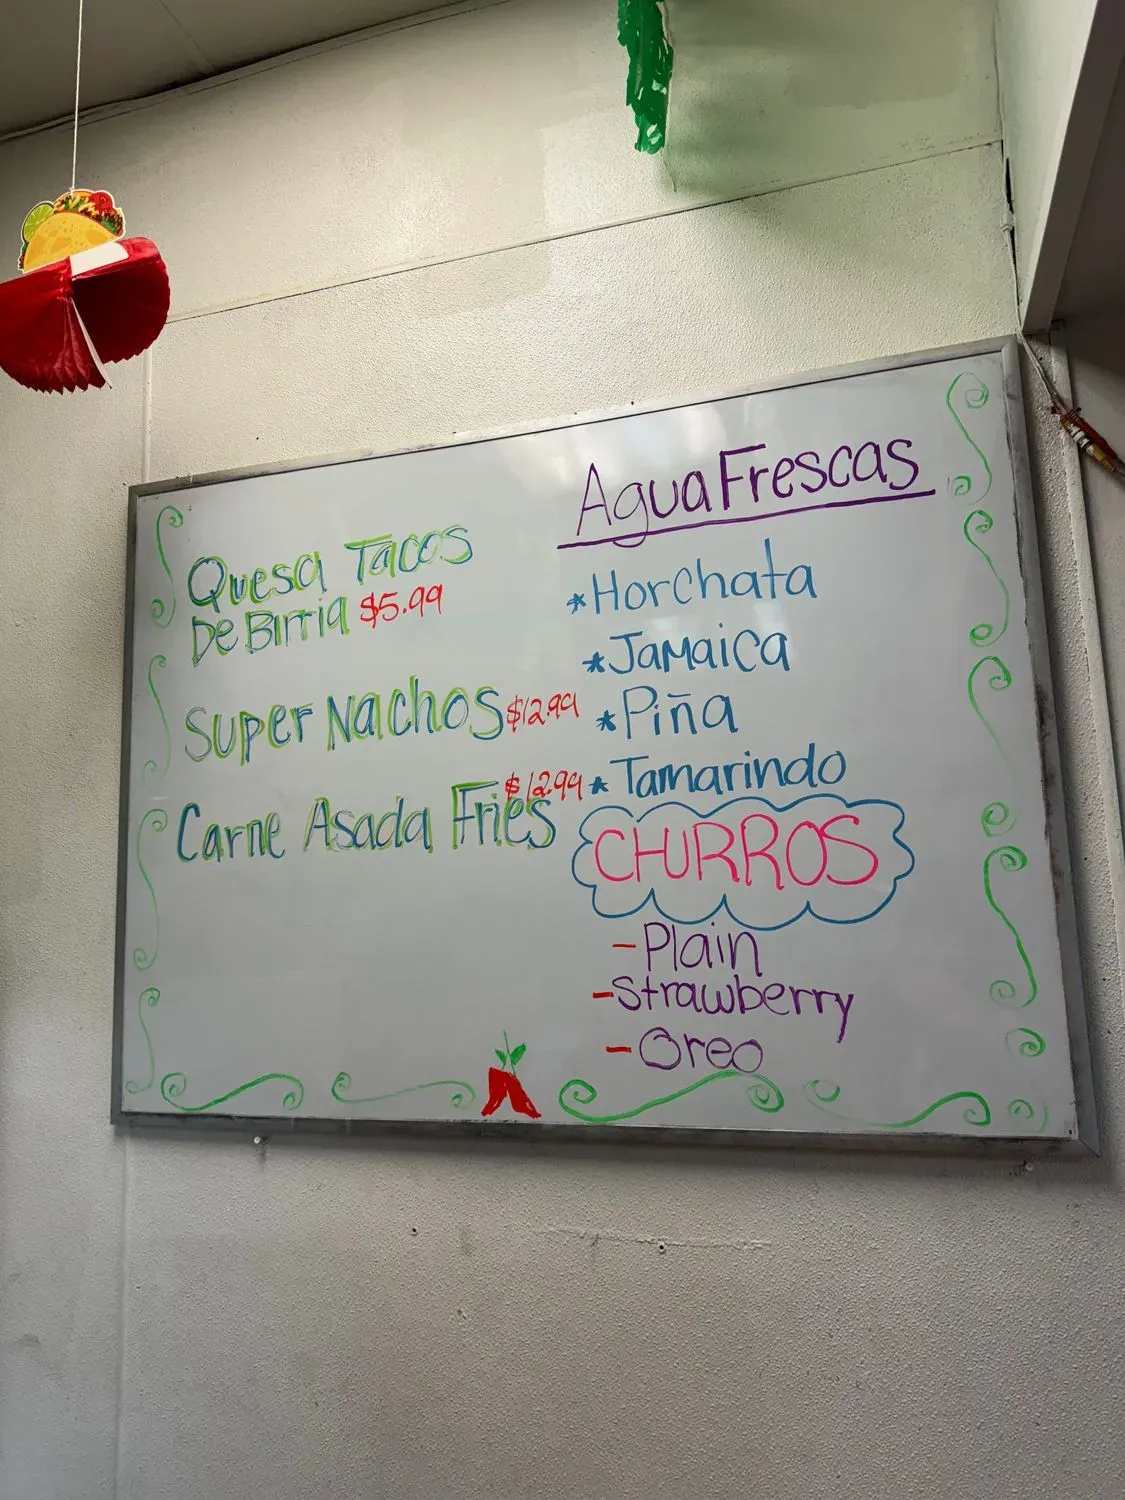 Quesa Tacos
De Birria $5.99
Super Nachos $12.99
$12.99
Carne Asada Fries
Agua Frescas
*Horchata
*Jamaica
*Piña
*Tamarindo
CHURROS
-Plain
-Strawberry
-Oreo